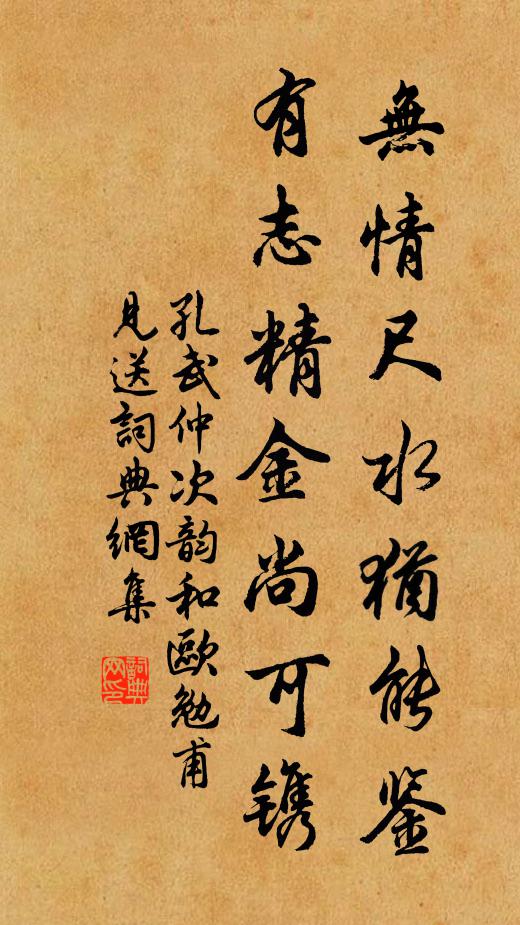 無情尺水猶能鉴
有志精金尚可镌
孔武仲次韵和歐勉甫
見送詞典網集
詞典网印